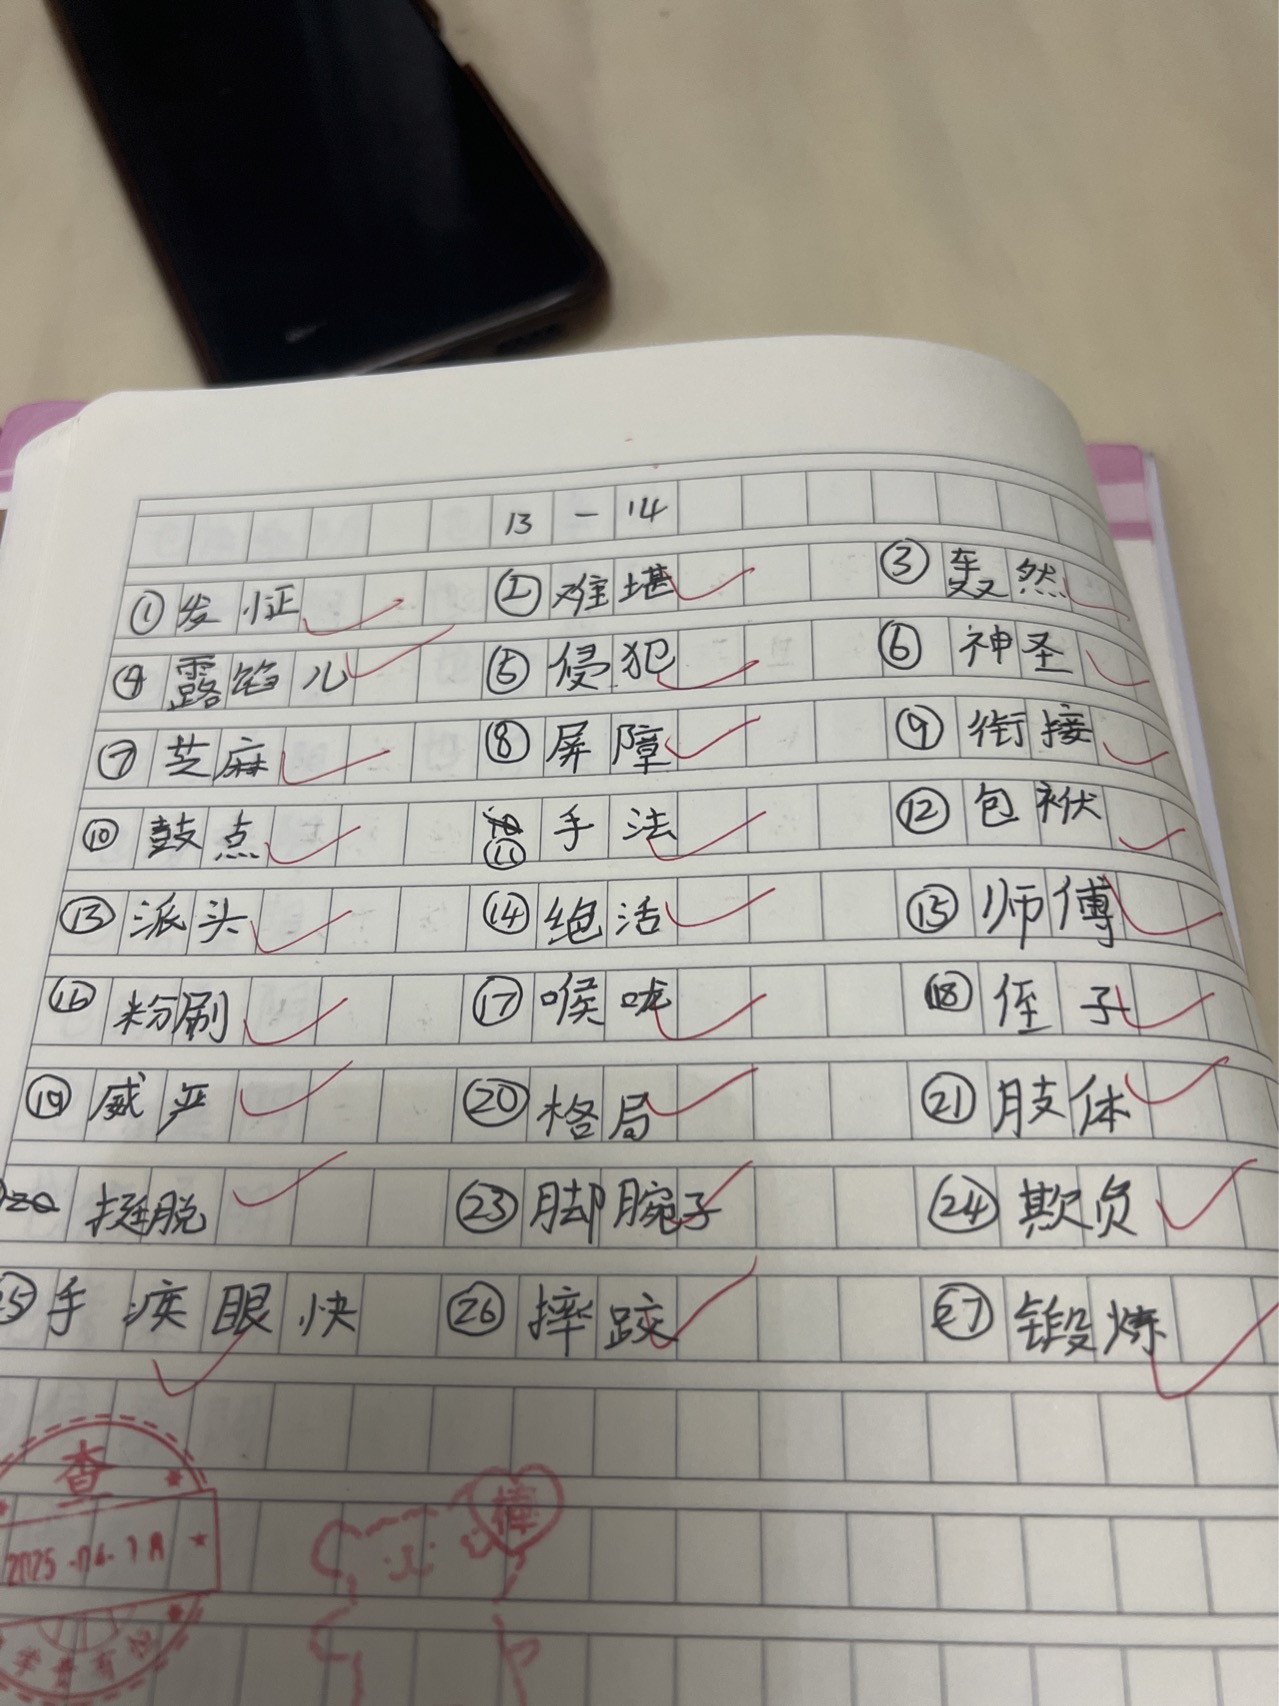 13 一 14
①发怔 ②难堪 ③轰然
④露馅儿 ⑤侵犯 ⑥神圣
⑦芝麻 ⑧屏障 ⑨衔接
⑩鼓点 ⑪手法 ⑫包袱
⑬派头 ⑭绝活 ⑮师傅
⑯粉刷 ⑰喉咙 ⑱侄子
⑲威严 ⑳格局 ㉑肢体
挺脱 ㉓脚腕子 ㉔欺负
㉕手疾眼快 ㉖摔跤 ㉗锻炼
查
棒
2025-04-
学 有